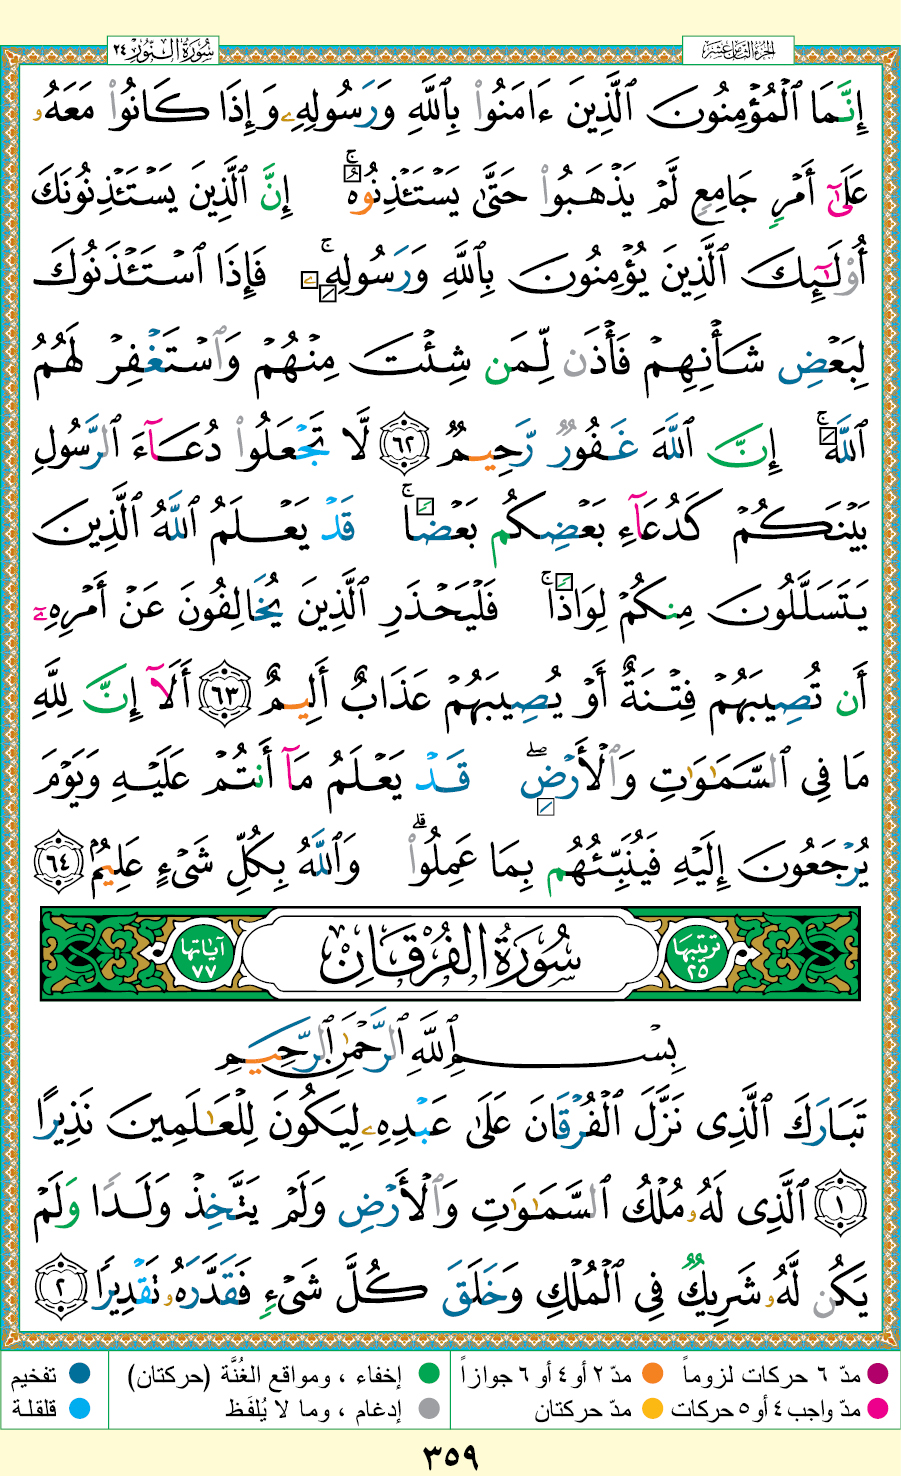 سُورَةُ النُّور ٢٤
الجزء الثامن عشر
إِنَّمَا ٱلْمُؤْمِنُونَ ٱلَّذِينَ ءَامَنُوا۟ بِٱللَّهِ وَرَسُولِهِۦ وَإِذَا كَانُوا۟ مَعَهُۥ
عَلَىٰٓ أَمْرٍ جَامِعٍ لَّمْ يَذْهَبُوا۟ حَتَّىٰ يَسْتَـْٔذِنُوهُ ۚ إِنَّ ٱلَّذِينَ يَسْتَـْٔذِنُونَكَ
أُو۟لَـٰٓئِكَ ٱلَّذِينَ يُؤْمِنُونَ بِٱللَّهِ وَرَسُولِهِۦ ۚ فَإِذَا ٱسْتَـْٔذَنُوكَ
لِبَعْضِ شَأْنِهِمْ فَأْذَن لِّمَن شِئْتَ مِنْهُمْ وَٱسْتَغْفِرْ لَهُمُ
ٱللَّهَ ۚ إِنَّ ٱللَّهَ غَفُورٌ رَّحِيمٌ ٦٢ لَّا تَجْعَلُوا۟ دُعَآءَ ٱلرَّسُولِ
بَيْنَكُمْ كَدُعَآءِ بَعْضِكُم بَعْضًا ۚ قَدْ يَعْلَمُ ٱللَّهُ ٱلَّذِينَ
يَتَسَلَّلُونَ مِنكُمْ لِوَاذًا ۚ فَلْيَحْذَرِ ٱلَّذِينَ يُخَالِفُونَ عَنْ أَمْرِهِۦٓ
أَن تُصِيبَهُمْ فِتْنَةٌ أَوْ يُصِيبَهُمْ عَذَابٌ أَلِيمٌ ٦٣ أَلَآ إِنَّ لِلَّهِ
مَا فِى ٱلسَّمَـٰوَٰتِ وَٱلْأَرْضِ ۖ قَدْ يَعْلَمُ مَآ أَنتُمْ عَلَيْهِ وَيَوْمَ
يُرْجَعُونَ إِلَيْهِ فَيُنَبِّئُهُم بِمَا عَمِلُوا۟ ۗ وَٱللَّهُ بِكُلِّ شَىْءٍ عَلِيمٌۢ ٦٤
ترتيبها ٢٥
سُورَةُ الفُرْقَانِ
آياتها ٧٧
بِسْمِ ٱللَّهِ ٱلرَّحْمَـٰنِ ٱلرَّحِيمِ
تَبَارَكَ ٱلَّذِى نَزَّلَ ٱلْفُرْقَانَ عَلَىٰ عَبْدِهِۦ لِيَكُونَ لِلْعَـٰلَمِينَ نَذِيرًا
١ ٱلَّذِى لَهُۥ مُلْكُ ٱلسَّمَـٰوَٰتِ وَٱلْأَرْضِ وَلَمْ يَتَّخِذْ وَلَدًا وَلَمْ
يَكُن لَّهُۥ شَرِيكٌ فِى ٱلْمُلْكِ وَخَلَقَ كُلَّ شَىْءٍ فَقَدَّرَهُۥ تَقْدِيرًا ٢
مدّ ٦ حركات لزوماً
مدّ ٢ أو ٤ أو ٦ جوازاً
إخفاء ، ومواقع الغُنَّة (حركتان)
تفخيم
مدّ واجب ٤ أو ٥ حركات
مدّ حركتان
إدغام ، وما لا يُلفَظ
قلقلة
٣٥٩